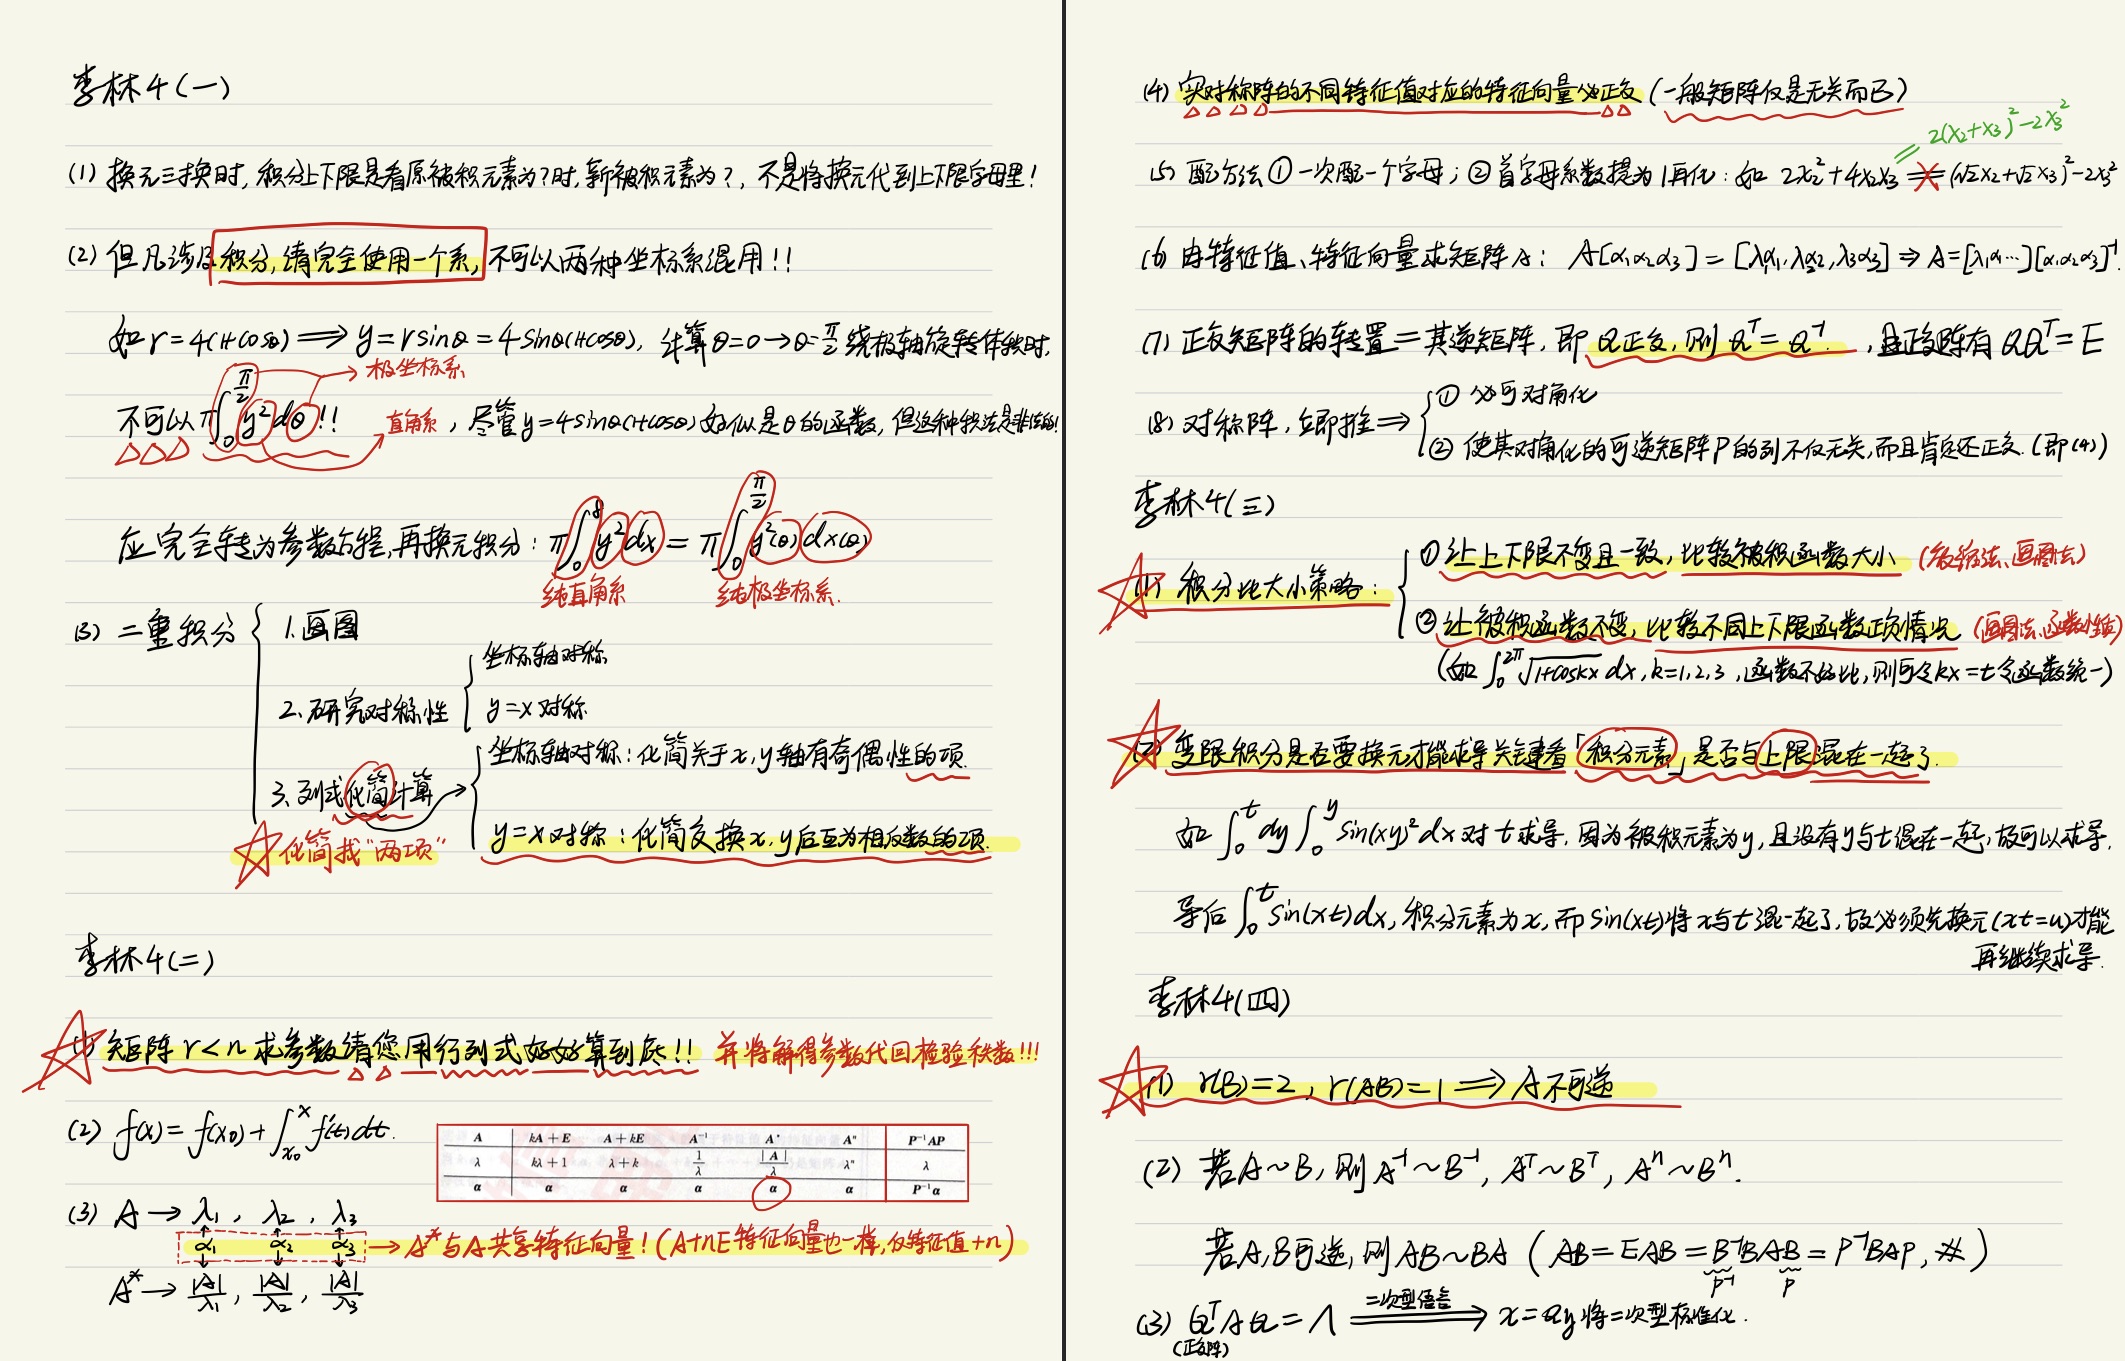 李林4(一)
(1) 换元三换时, 积分上下限是看原被积元素为?时, 新被积元素为?, 不是将换元代到上下限字母里!
(2) 但凡涉及积分, 请完全使用一个系, 不可以两种坐标系混用!!
如 r=4(1+cosθ) ⟹ y=rsinθ=4sinθ(1+cosθ), 计算θ=0→θ=π/2 绕极轴旋转体积时,
极坐标系
不可以 π∫₀^{π/2} y²dθ!! 直角系, 尽管 y=4sinθ(1+cosθ) 好似是θ的函数, 但这种积法是非法的!
应完全转为参数方程, 再换元积分: π∫₀⁸ y²dx = π∫₀^{π/2} y²(θ)dx(θ)
纯直角系 纯极坐标系.
(3) 二重积分
1. 画图
2. 研究对称性
坐标轴对称
y=x对称
3. 列式化简计算
坐标轴对称: 化简关于x, y轴有奇偶性的项.
y=x对称: 化简交换x, y后互为相反数的项.
化简找"两项"
李林4(二)
(1) 矩阵 r<n 求参数请您用行列式好好算到底!! 并将解得参数代回检验秩数!!!
(2) f(x)=f(x₀)+∫_{x₀}^{x} f'(t)dt.
A kA+E A+kE A⁻¹ A* Aⁿ P⁻¹AP
λ kλ+1 λ+k 1/λ |A|/λ λⁿ λ
α α α α α α P⁻¹α
(3) A → λ₁, λ₂, λ₃
α₁ α₂ α₃ → A*与A共享特征向量! (A+nE特征向量也一样, 仅特征值+n)
A* → |A|/λ₁, |A|/λ₂, |A|/λ₃
(4) 实对称阵的不同特征值对应的特征向量必正交 (一般矩阵仅是无关而已)
2(x₂+x₃)²-2x₃²
(5) 配方法 ① 一次配一个字母; ② 首字母系数提为1再化: 如 2x₂²+4x₂x₃ = (√2x₂+√2x₃)²-2x₃²
(6) 由特征值、特征向量求矩阵A: A[α₁α₂α₃]=[λ₁α₁, λ₂α₂, λ₃α₃] ⇒ A=[λ₁α₁…][α₁α₂α₃]⁻¹.
(7) 正交矩阵的转置=其逆矩阵, 即 Q正交, 则 Qᵀ=Q⁻¹, 且正交阵有 QQᵀ=E
(8) 对称阵, 立即推 ⇒
① 必可对角化
② 使其对角化的可逆矩阵P的列不仅无关, 而且肯定还正交. (即(4))
李林4(三)
(1) 积分比大小策略:
① 让上下限不变且一致, 比较被积函数大小 (放缩法、画图法)
② 让被积函数不变, 比较不同上下限函数正负情况 (画图法、函数性质)
(如 ∫₀^{2π} √(1+coskx) dx, k=1,2,3, 函数不好比, 则可令kx=t令函数统一)
(2) 变限积分是否要换元才能求导关键看「积分元素」是否与上限混在一起了.
如 ∫₀ᵗ dy ∫₀ʸ sin(xy)² dx 对t求导, 因为被积元素为y, 且没有y与t混在一起, 故可以求导.
导后 ∫₀ᵗ sin(xt)dx, 积分元素为x, 而sin(xt)将x与t混一起了, 故必须先换元(xt=u)才能
再继续求导.
李林4(四)
(1) r(B)=2, r(AB)=1 ⟹ A不可逆
(2) 若A~B, 则 A⁻¹~B⁻¹, Aᵀ~Bᵀ, Aⁿ~Bⁿ.
若A, B可逆, 则 AB~BA (AB=EAB=B⁻¹BAB=P⁻¹BAP, #)
P⁻¹ P
(3) QᵀAQ=Λ ⟹ 二次型语言 x=Qy将二次型标准化.
(正交阵)